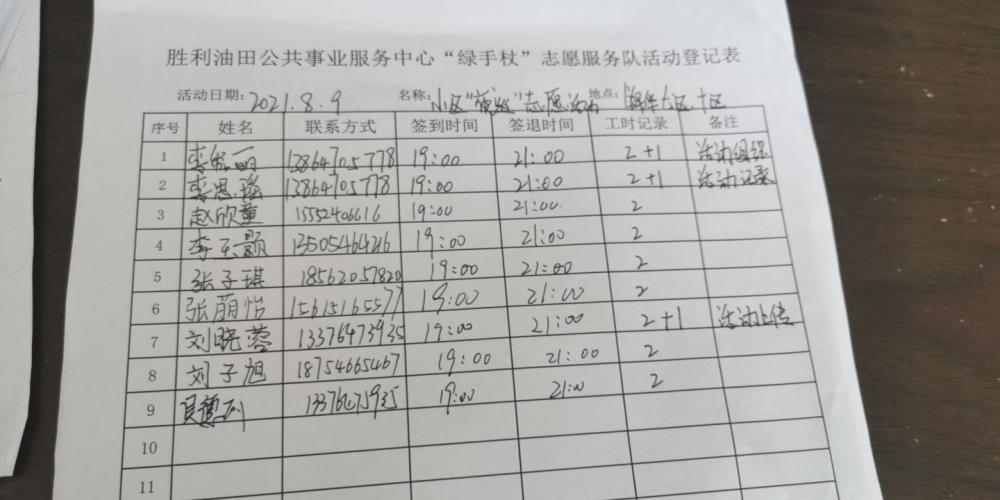 胜利油田公共事业服务中心“绿手杖”志愿服务队活动登记表
活动日期：2021.8.9 名称：小区“ ”志愿活动 地点： 区、十区
序号 姓名 联系方式 签到时间 签退时间 工时记录 备注
1 李 丽 13864705778 19:00 21:00 2+1 活动组织
2 李思瑶 13864705778 19:00 21:00 2+1 活动记录
3 赵欣童 15552406616 19:00 21:00 2
4 李东灏 13505464216 19:00 21:00 2
5 张子琪 18562057820 19:00 21:00 2
6 张萌怡 15615165577 19:00 21:00 2
7 刘晓蓉 13376473935 19:00 21:00 2+1 活动上传
8 刘子旭 18754665467 19:00 21:00 2
9 19:00 21:00 2
10
11